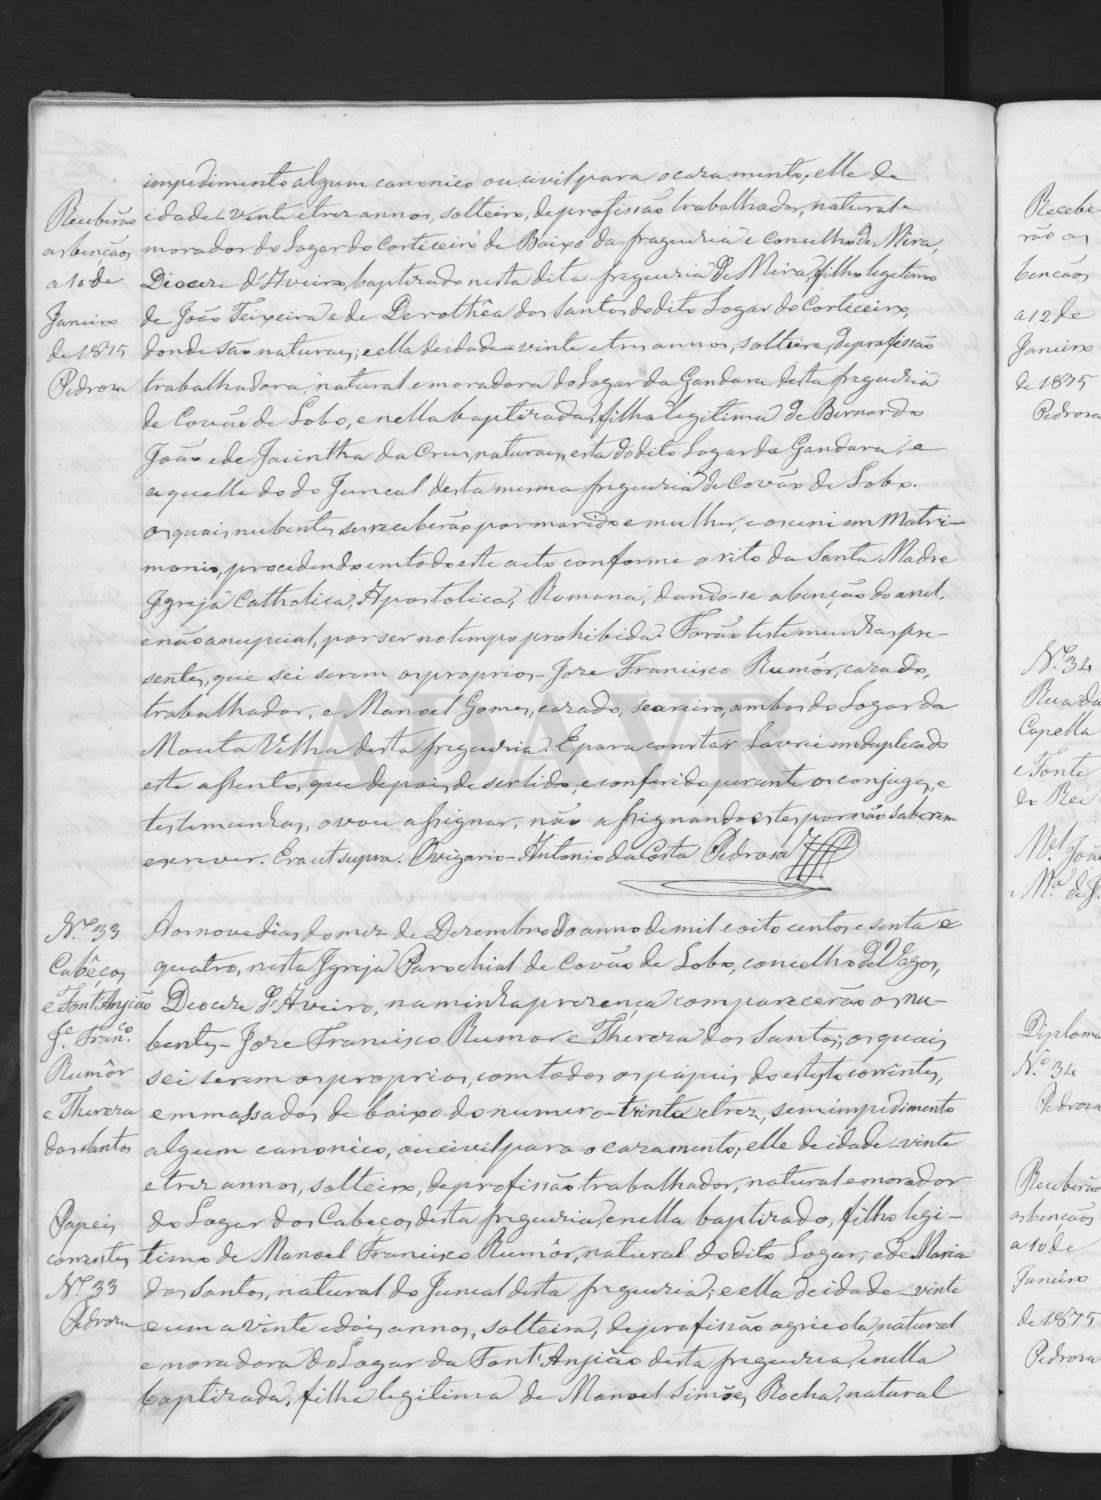 impedimento algum canonico ou civil para o cazamento; elle de
idade vinte e trez annos, solteiro, de profissão trabalhador, natural e
morador do Logar do Corticeiro de Baixo da freguezia e Concelho de Mira,
Diocere d'Aveiro, baptizado nesta dita freguezia de Mira, filho legitimo
de João Teixeira e de Dorothêa dos Santos do dito Logar do Corticeiro,
donde são naturaes; e ella de idade vinte e tres annos, solteira, de profissão
trabalhadora, natural e moradora do Logar da Gandara desta freguezia
de Covão de Lobo, e nella baptizada, filha legitima de Bernardo
João e de Jacintha da Cruz, naturaes, esta do dito Logar da Gandara, e
aquelle do do Juncal desta mesma freguezia de Covão de Lobo.
Os quaes nubentes se receberão por marido e mulher, e os uni em Matri-
monio, procedendo em todo este acto conforme o rito da Santa Madre
Igreja Catholica, Apostolica, Romana, dando-se a benção do anel,
e não a nupcial, por ser no tempo prohibido. Forão testemunhas pre-
sentes, que sei serem os proprios - Joze Francisco Rumôr, cazado,
trabalhador, e Manoel Gomes, cazado, seareiro, ambos do Logar da
Mouta Velha desta freguezia. E para constar lavrei em duplicado
este assento, que depois de ser lido, e conferido perante os conjuges, e
testemunhas, o vou assignar, não assignando estes por não saberem
escrever. Era ut supra. O vigario - Antonio da Costa Pedroza
Receberão
as benções
a 10 de
Janeiro
de 1875
Pedroza
Aos nove dias do mez de Dezembro do anno de mil e oito centos e setenta e
quatro, nesta Igreja Parochial de Covão de Lobo, concelho de Vagos,
Diocere d'Aveiro, na minha prezença comparecerão os nu-
bentes - Joze Francisco Rumor e Thereza dos Santos; os quaes
sei serem os proprios, com todos os papeis do estylo correntes,
emmassados de baixo do numero - trinta e trez, sem impedimento
algum canonico, ou civil para o cazamento; elle de idade vinte
e trez annos, solteiro, de profissão trabalhador, natural e morador
do Logar dos Cabeços desta freguezia, e nella baptizado, filho legi-
timo de Manoel Francisco Rumôr, natural do dito Logar, e de Maria
dos Santos, natural do Juncal desta freguezia; e ella de idade vinte
e um a vinte e dois annos, solteira, de profissão agricola, natural
e moradora do Logar da Font'Anjião desta freguezia, e nella
baptizada, filha legitima de Manoel Simões Rocha, natural
Nº 33
Cabêços
e Font'Anjião
Jê Franco.
Rumôr
e Thereza
dos Santos
Papeis
correntes
Nº 33
Pedroza
Recebe-
rão as
benções
a 12 de
Janeiro
de 1875
Pedroza
Nº 34
Rua da
Capella
e Fonte
do Rei
Mel João
e Mª de J.
Diploma
Nº 34
Pedroza
Receberão
as benções
a 10 de
Janeiro
de 1875
Pedroza
ADAVR